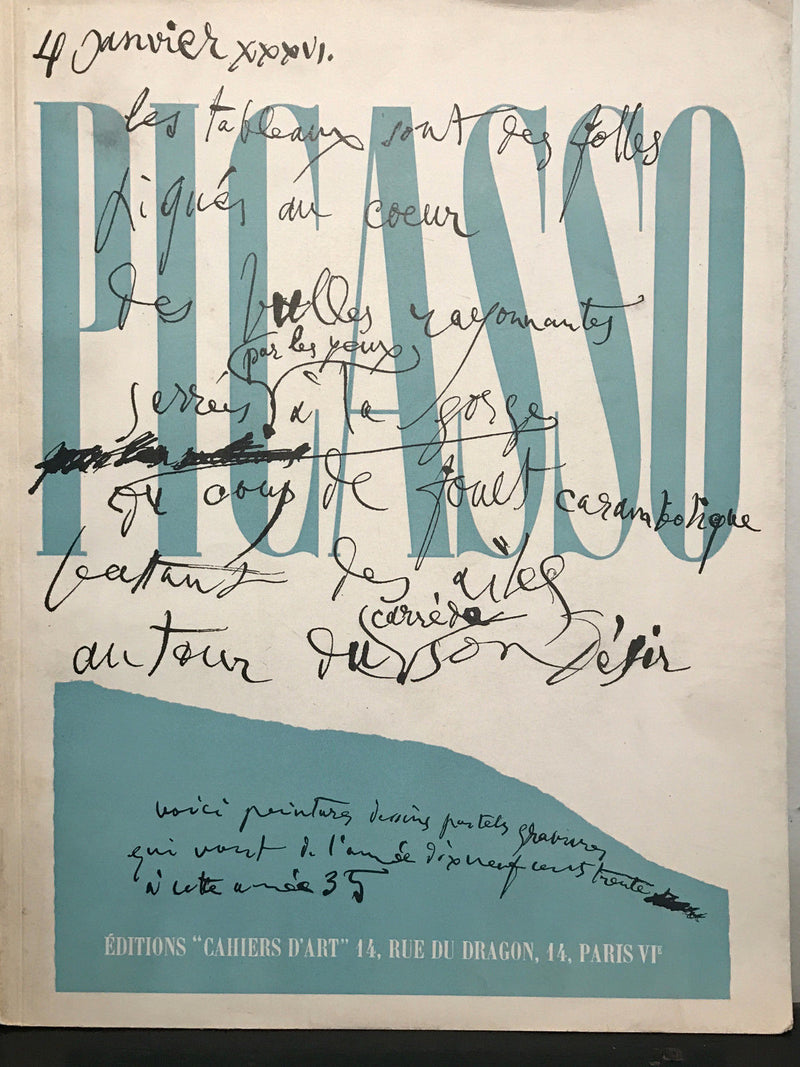 4 janvier XXXVI.
PICASSO
les tableaux sont des folles
piqués au coeur
des bulles rayonnantes
par les yeux
serrées à la gorge
du coup de fouet carambolique
battant des ailes
carré de
autour du son Désir
voici peintures dessins pastels gravures
qui vont de l'année dixneufcents trente
à cette année 35
ÉDITIONS "CAHIERS D'ART" 14, RUE DU DRAGON, 14, PARIS VIE